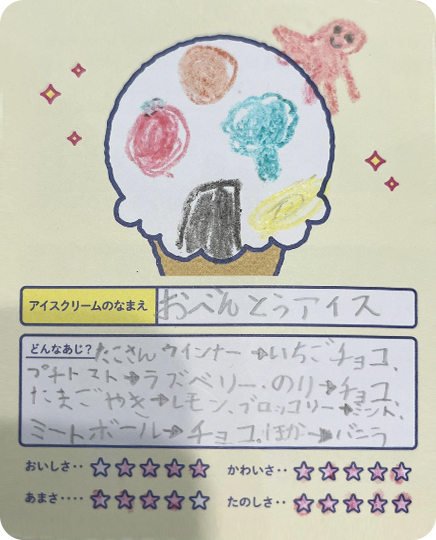 アイスクリームのなまえ おべんとうアイス
どんなあじ？ たこさんウインナー→いちごチョコ、
プチトマト→ラズベリー・のり→チョコ、
たまごやき→レモン、ブロッコリー→ミント、
ミートボール→チョコ。ほか→バニラ
おいしさ‥ かわいさ‥
あまさ‥‥ たのしさ‥